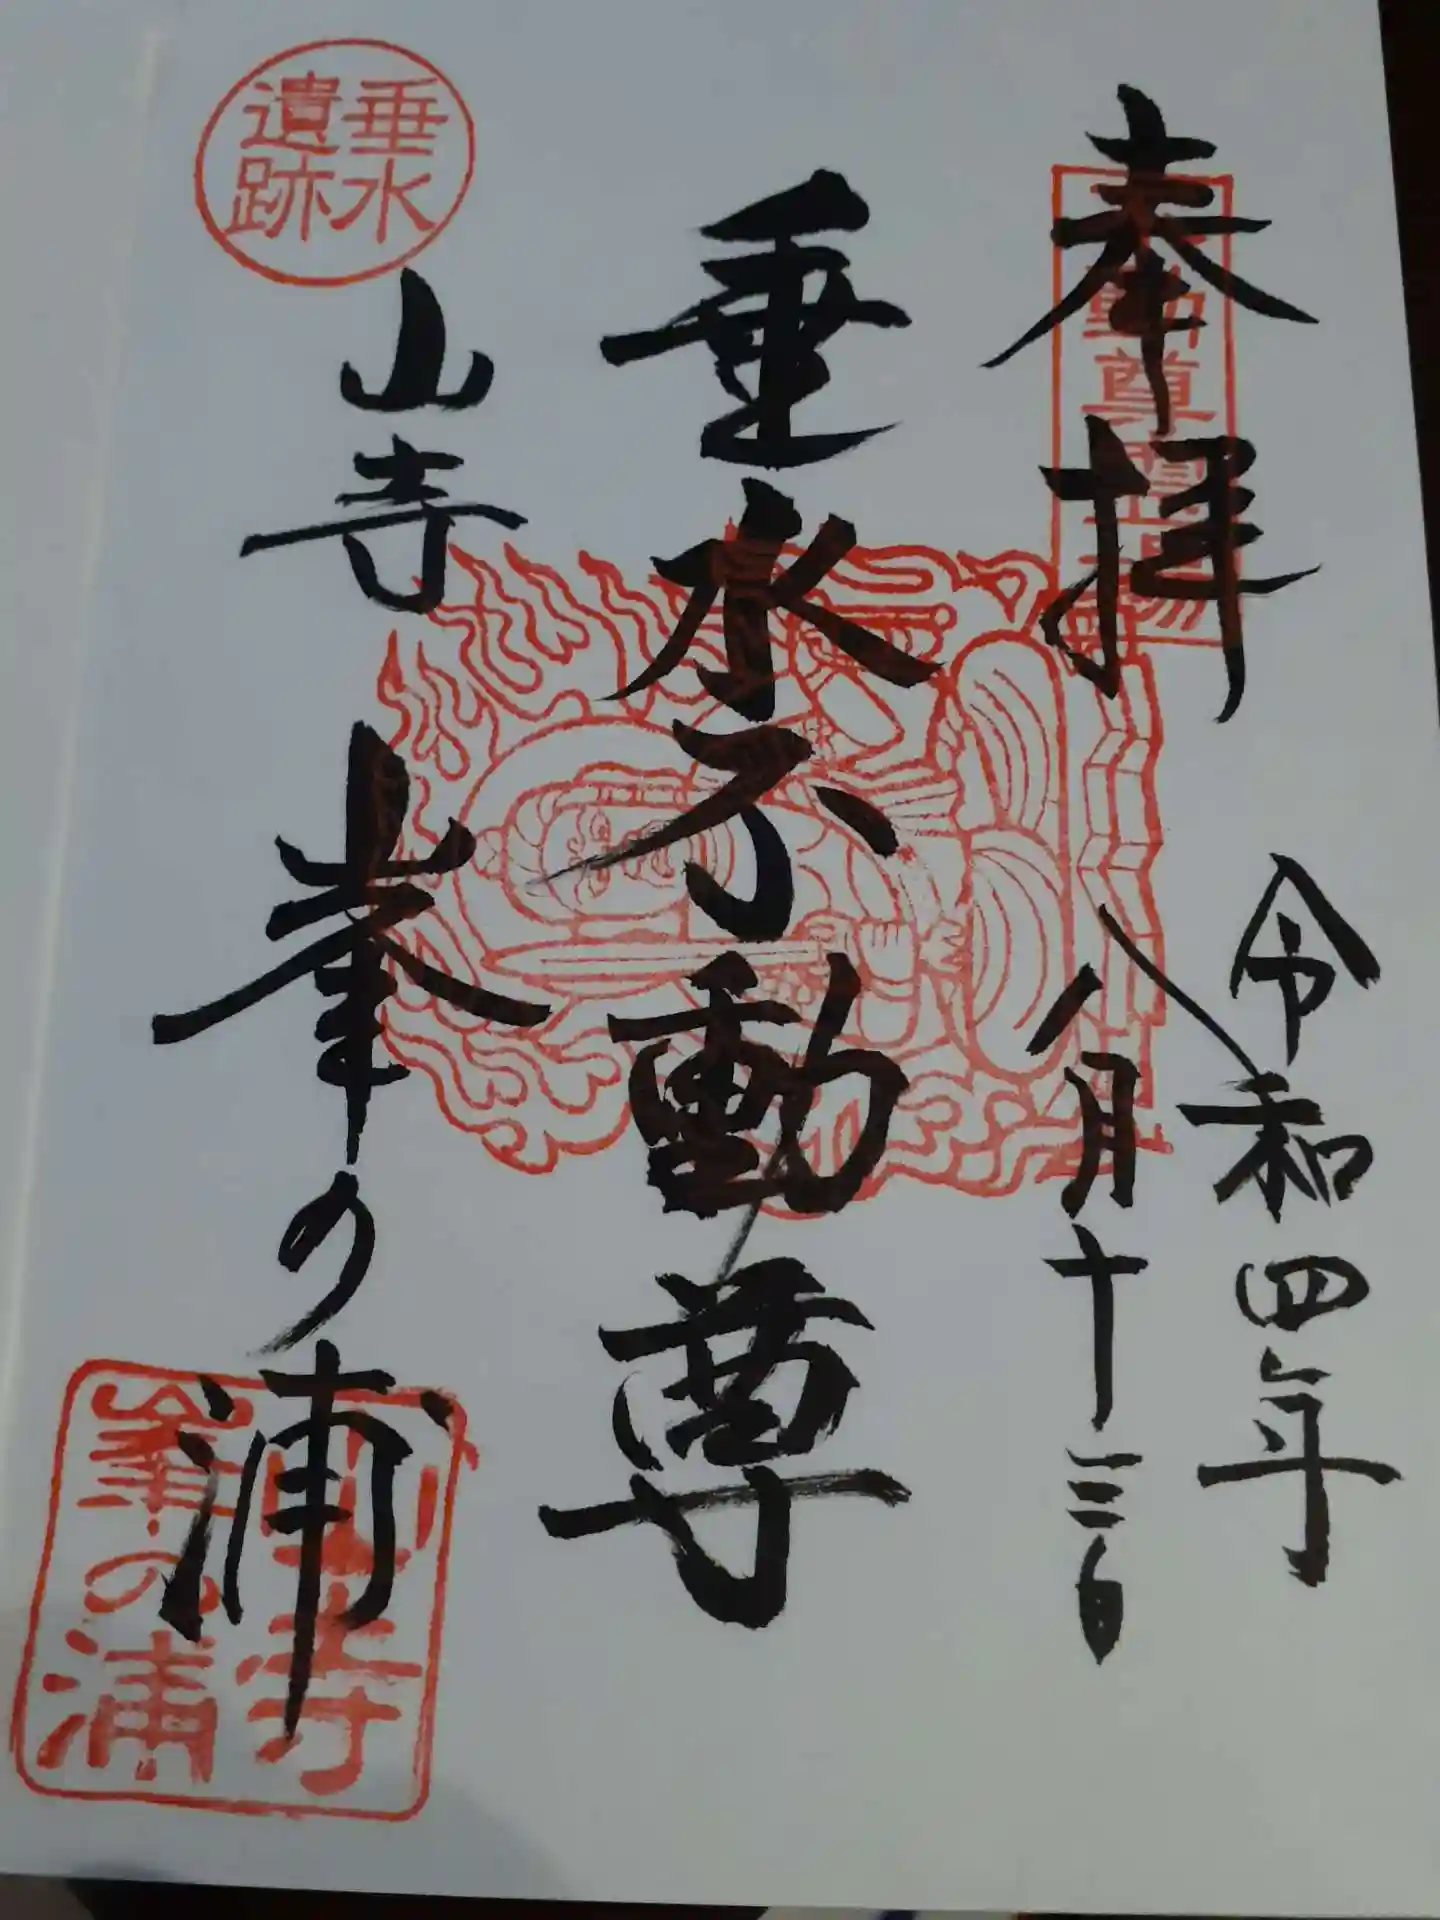 奉拝
令和四年
八月十三日
垂水不動尊
山寺 峯の浦
垂水
遺跡
動尊霊場
山寺
峯の浦